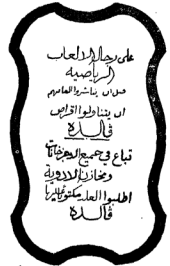 على رجال الالعاب
الرياضيه
قبل ان يباشروا العابهم
ان يتناولوا اقراص
فالده
تباع في جميع الاجزخانات
ومخازن الادوية
اطلبوا العلبة مكتوب عليها
فالده